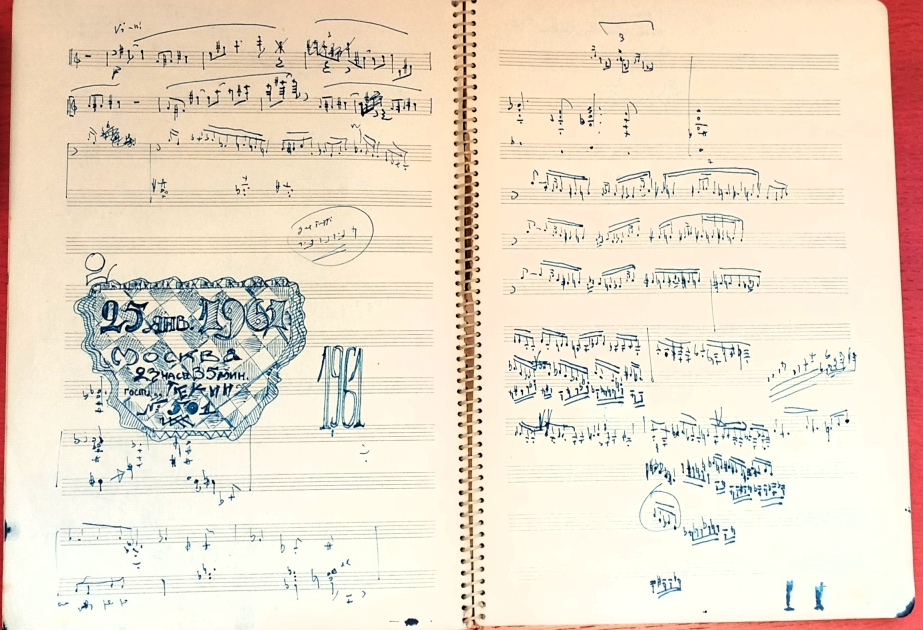 Vi-ni
3
25 янв. 1961
Москва
23 часа 35 мин.
гости... "Пекин"
№ 501
1961